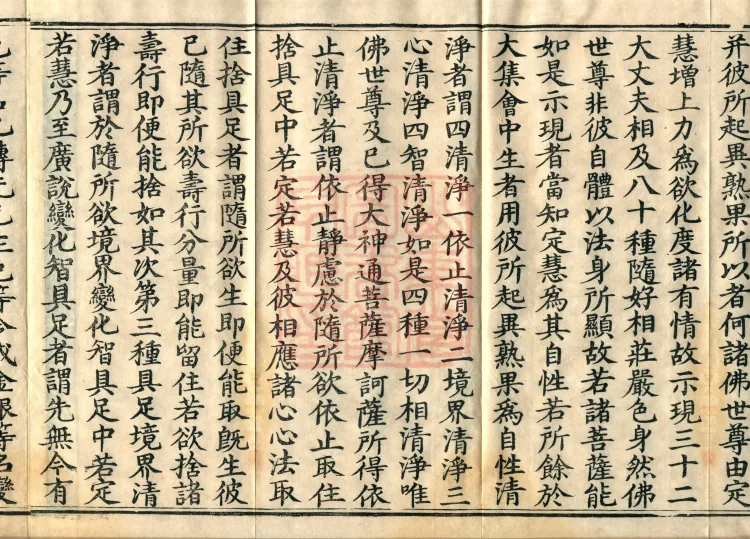 并彼所起異熟果所以者何諸佛世尊由定
慧增上力爲欲化度諸有情故示現三十二
大丈夫相及八十種隨好相莊嚴色身然佛
世尊非彼自體以法身所顯故若諸菩薩能
如是示現者當知定慧爲其自性若所餘於
大集會中生者用彼所起異熟果爲自性清
淨者謂四清淨一依止清淨二境界清淨三
心清淨四智清淨如是四種一切相清淨唯
佛世尊及已得大神通菩薩摩訶薩所得依
止清淨者謂依止靜慮於隨所欲依止取住
捨具足中若定若慧及彼相應諸心心法取
住捨具足者謂隨所欲生即便能取旣生彼
已隨其所欲壽行分量即能留住若欲捨諸
壽行即便能捨如其次第三種具足境界清
淨者謂於隨所欲境界變化智具足中若定
若慧乃至廣說變化智具足者謂先無今有
等令成金銀等名變